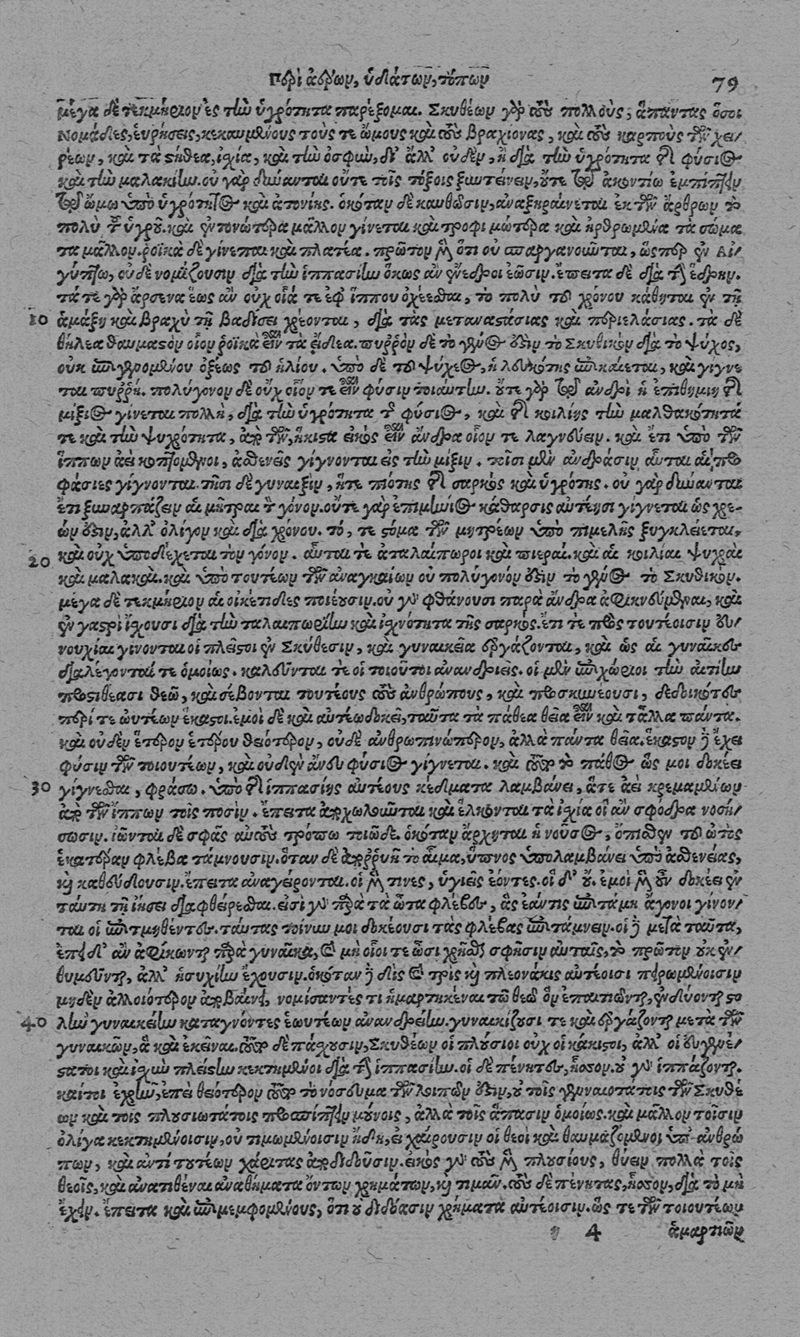 Περὶ ἀέρων, ὑδάτων, τόπων 79
μέγα δὲ τεκμήριον ἐς τὴν ὑγρότητα παρέξομαι. Σκυθέων γὰρ τοὺς πολλοὺς, ἅπαντας ὅσοι
Νομάδες, εὑρήσεις, κεκαυμένους τούς τε ὤμους καὶ τοὺς βραχίονας, καὶ τοὺς καρποὺς τῶν χει-
ρέων, καὶ τὰ στήθεα, ἰχία, καὶ τὴν ὀσφὺν, δι' ἄλλ' οὐδὲν, ἢ διὰ τὴν ὑγρότητα τῆς φύσιος
καὶ τὴν μαλακίην. οὐ γὰρ δύνανται οὔτε τοῖς τόξοις ξυντείνειν, οὔτε τῷ ἀκοντίῳ ἐμπίπτειν
τῷ ὤμῳ ὑπὸ ὑγρότητος καὶ ἀτονίης. ὁκόταν δὲ καυθῶσιν, ἀναξηραίνεται ἐκ τῶν ἄρθρων τὸ
πολὺ τοῦ ὑγροῦ. καὶ ἐντονώτερα μᾶλλον γίνεται καὶ τροφιμώτερα καὶ ἠρθρωμένα τὰ σώμα
τα μᾶλλον. ῥοϊκὰ δὲ γίνεται καὶ πλατέα. πρῶτον μὲν ὅτι οὐ σπαργανοῦνται, ὥσπερ ἐν Αἰ-
γύπτῳ, οὐδὲ νομίζουσιν διὰ τὴν ἱππασίην ὅκως ἂν εὔεδροι ἔωσιν. ἔπειτα δὲ διὰ τὴν ἕδρην.
τά τε γὰρ ἄρσενα ἕως ἂν οὐχ οἷά τε ἐφ' ἵππου ὀχέεσθαι, τὸ πολὺ τοῦ χρόνου κάθηται ἐν τῇ
10 ἁμάξῃ καὶ βραχὺ τῇ βαδίσει χρέονται, διὰ τὰς μεταναστάσιας καὶ περιελάσιας. τὰ δὲ
θήλεα θαυμαστὸν οἷον ῥοϊκὰ εἶναι τὰ εἴδεα. πυῤῥὸν δὲ τὸ γένος ὅλον τὸ Σκυθικὸν διὰ τὸ ψύχος,
οὐκ ἐπιγινομένου ὀξέως τοῦ ἡλίου. ὑπὸ δὲ τοῦ ψύχεος, ἡ λευκότης ἐπικαίεται, καὶ γίγνε
ται πυῤῥή. πολύγονον δὲ οὐχ οἷόν τε εἶναι φύσιν τοιαύτην. οὔτε γὰρ τῷ ἀνδρὶ ἡ ἐπιθυμίη τῆς
μίξιος γίνεται πολλὴ, διὰ τὴν ὑγρότητα τῆς φύσιος, καὶ τῆς κοιλίης τὴν μαλθακότητά
τε καὶ τὴν ψυχρότητα, ἀπὸ τῶν, ἥκιστα εἰκὸς εἶναι ἄνδρα οἷόν τε λαγνεύειν. καὶ ἔτι ὑπὸ τῶν
ἵππων ἀεὶ κοπτόμενοι, ἀσθενέες γίγνονται ἐς τὴν μίξιν. τοῖσι μὲν ἀνδράσιν αὗται αἱ προ
φάσιες γίγνονται. τῇσι δὲ γυναιξὶν, ἥτε πιότης τῆς σαρκὸς καὶ ὑγρότης. οὐ γὰρ δύνανται
ἔτι ξυναρπάζειν αἱ μῆτραι τὸν γόνον. οὔτε γὰρ ἐπιμήνιος κάθαρσις αὐτῇσι γίγνεται ὡς χρε-
ών ἐστιν, ἀλλ' ὀλίγον καὶ διὰ χρόνου. τό, τε στόμα τῶν μητρέων ὑπὸ πιμελῆς ξυγκλείεται,
20 καὶ οὐχ ὑποδέχεται τὸν γόνον. αὗταί τε ἀταλαίπωροι καὶ πιεραὶ. καὶ αἱ κοιλίαι ψυχραὶ
καὶ μαλακαὶ. καὶ ὑπὸ τουτέων τῶν ἀναγκαίων οὐ πολύγονόν ἐστιν τὸ γένος τὸ Σκυθικόν.
μέγα δὲ τεκμήριον αἱ οἰκέτιδες ποιέουσιν. οὐ γὰρ φθάνουσι παρὰ ἄνδρα ἀφικνεύμεναι, καὶ
ἐν γαστρὶ ἴχουσι διὰ τὴν ταλαιπωρίην καὶ ἰχνότητα τῆς σαρκός. ἔτι τε πρὸς τουτέοισιν εὐ-
νουχίαι γίνονται οἱ πλεῖστοι ἐν Σκύθῃσιν, καὶ γυναικεῖα ἐργάζονται, καὶ ὡς αἱ γυναῖκες
διαλέγονταί τε ὁμοίως. καλεῦνταί τε οἱ τοιοῦτοι ἀνανδριές. οἱ μὲν ἐπιχώριοι τὴν αἰτίην
προστιθέασι θεῷ, καὶ σέβονται τουτέους τοὺς ἀνθρώπους, καὶ προσκυνέουσι, δεδοικότες
περί τε ὡυτέων ἕκαστοι. ἐμοὶ δὲ καὶ αὐτέῳ δοκεῖ, ταῦτα τὰ πάθεα θεῖα εἶναι καὶ τἄλλα πάντα.
καὶ οὐδὲν ἕτερον ἑτέρου θειότερον, οὐδὲ ἀνθρωπινώτερον, ἀλλὰ πάντα θεῖα. ἕκαστον δὲ ἔχει
φύσιν τῶν τοιουτέων, καὶ οὐδὲν ἄνευ φύσιος γίγνεται. καὶ τοῦτο τὸ πάθος ὥς μοι δοκέει
30 γίγνεσθαι, φράσω. ὑπὸ τῆς ἱππασίης αὐτέους κέδματα λαμβάνει, ἅτε ἀεὶ κρεμαμένων
ἀπὸ τῶν ἵππων τοῖς ποσίν. ἔπειτα ἀποχωλοῦνται καὶ ἑλκόνται τὰ ἰχία οἳ ἂν σφόδρα νοσή-
σωσιν. ἰῶνται δὲ σφᾶς αὐτοὺς τρόπῳ τοιῷδε. ὁκόταν ἄρχηται ἡ νοῦσος, ὄπισθεν τοῦ ὠτὸς
ἑκατέραν φλέβα τάμνουσιν. ὅταν δὲ ἀποῤῥυῇ τὸ αἷμα, ὕπνος ὑπολαμβάνει ὑπὸ ἀσθενείας,
καὶ καθεύδουσιν. ἔπειτα ἀναγέρονται. οἱ μέν τινες, ὑγιέες ἐόντες. οἱ δ' οὔ. ἐμοὶ μὲν οὖν δοκέει ἐν
ταύτῃ τῇ ἰήσει διαφθείρεσθαι. εἰσὶ γὰρ παρὰ τὰ ὦτα φλέβες, ἃς ἐάν τις ἐπιτάμῃ ἄγονοι γίνον-
ται οἱ ἐπιτμηθέντες. ταύτας τοίνυν μοι δοκέουσι τὰς φλέβας ἐπιτάμνειν. οἱ δὲ μετὰ ταῦτα,
ἐπειδὰν ἀφίκωνται παρὰ γυναῖκα, καὶ μὴ οἷοί τε ὦσι χρῆσθαι σφῇσιν αὐταῖς, τὸ πρῶτον οὐκ ἐν-
θυμεῦνται, ἀλλ' ἡσυχίην ἔχουσιν. ὁκόταν δὲ δὶς καὶ τρὶς καὶ πλεονάκις αὐτέοισι πειρωμένοισιν
μηδὲν ἀλλοιότερον ἀποβαίνῃ, νομίσαντές τι ἡμαρτηκέναι τῷ θεῷ ὃν ἐπαιτιῶνται, ἐνδύονται στο
40 λὴν γυναικείην καταγνόντες ἑωυτέων ἀνανδρείην. γυναικίζουσί τε καὶ ἐργάζονται μετὰ τῶν
γυναικῶν, ἃ καὶ ἐκεῖναι. τοῦτο δὲ πάσχουσιν, Σκυθέων οἱ πλούσιοι οὐχ οἱ κάκιστοι, ἀλλ' οἱ εὐγενέ-
στατοι καὶ ἰσχὺν πλείστην κεκτημένοι διὰ τὴν ἱππασίην. οἱ δὲ πένητες, ἧσσον. οὐ γὰρ ἱππάζονται.
καίτοι ἐχρῆν, ἐπεὶ θειότερον τοῦτο τὸ νόσευμα τῶν λοιπῶν ἐστιν, οὐ τοῖς γενναιοτάτοις τῶν Σκυθέ
ων καὶ τοῖς πλουσιωτάτοις προσπίπτειν μούνοις, ἀλλὰ τοῖς ἅπασιν ὁμοίως. καὶ μᾶλλον τοῖσιν
ὀλίγα κεκτημένοισιν, οὐ τιμωμένοισιν ἤδη, εἰ χαίρουσιν οἱ θεοὶ καὶ θαυμαζόμενοι ὑπ' ἀνθρώ
πων, καὶ ἀντὶ τουτέων χάριτας ἀποδιδοῦσιν. εἰκὸς γὰρ τοὺς μὲν πλουσίους, θύειν πολλὰ τοῖς
θεοῖς, καὶ ἀνατιθέναι ἀναθήματα ὄντων χρημάτων, καὶ τιμᾶν. τοὺς δὲ πένητας, ἧσσον, διὰ τὸ μὴ
ἔχειν. ἔπειτα καὶ ἐπιμεμφομένους, ὅτι οὐ διδόασιν χρήματα αὐτέοισιν. ὥς τε τῶν τοιουτέων
4 ἁμαρτιῶν